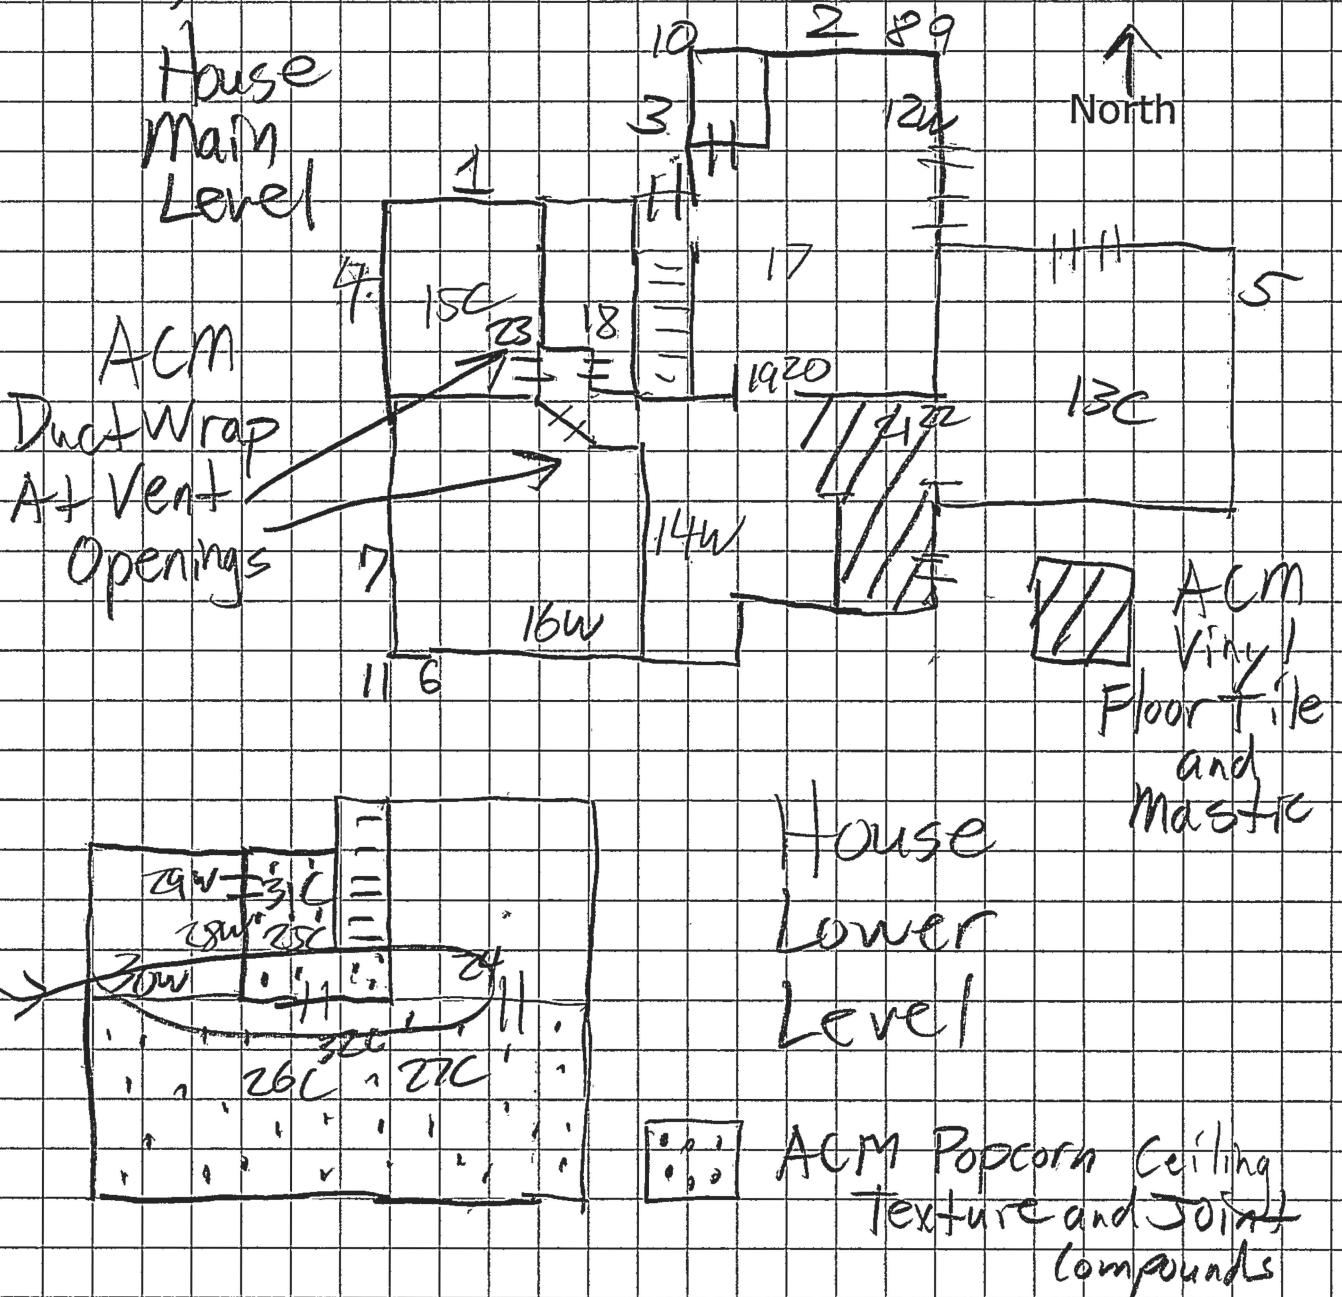 House
Main
Level
10
2
8
9
North
3
12W
1
4
15C
23
18
17
5
ACM
Duct Wrap
At Vent
Openings
19
20
21
22
13C
7
14W
16W
11
6
ACM
Vinyl
Floor Tile
and
Mastic
House
Lower
Level
29W
31C
28W
25C
30W
24
32C
26C
27C
ACM Popcorn Ceiling
Texture and Joint
Compounds